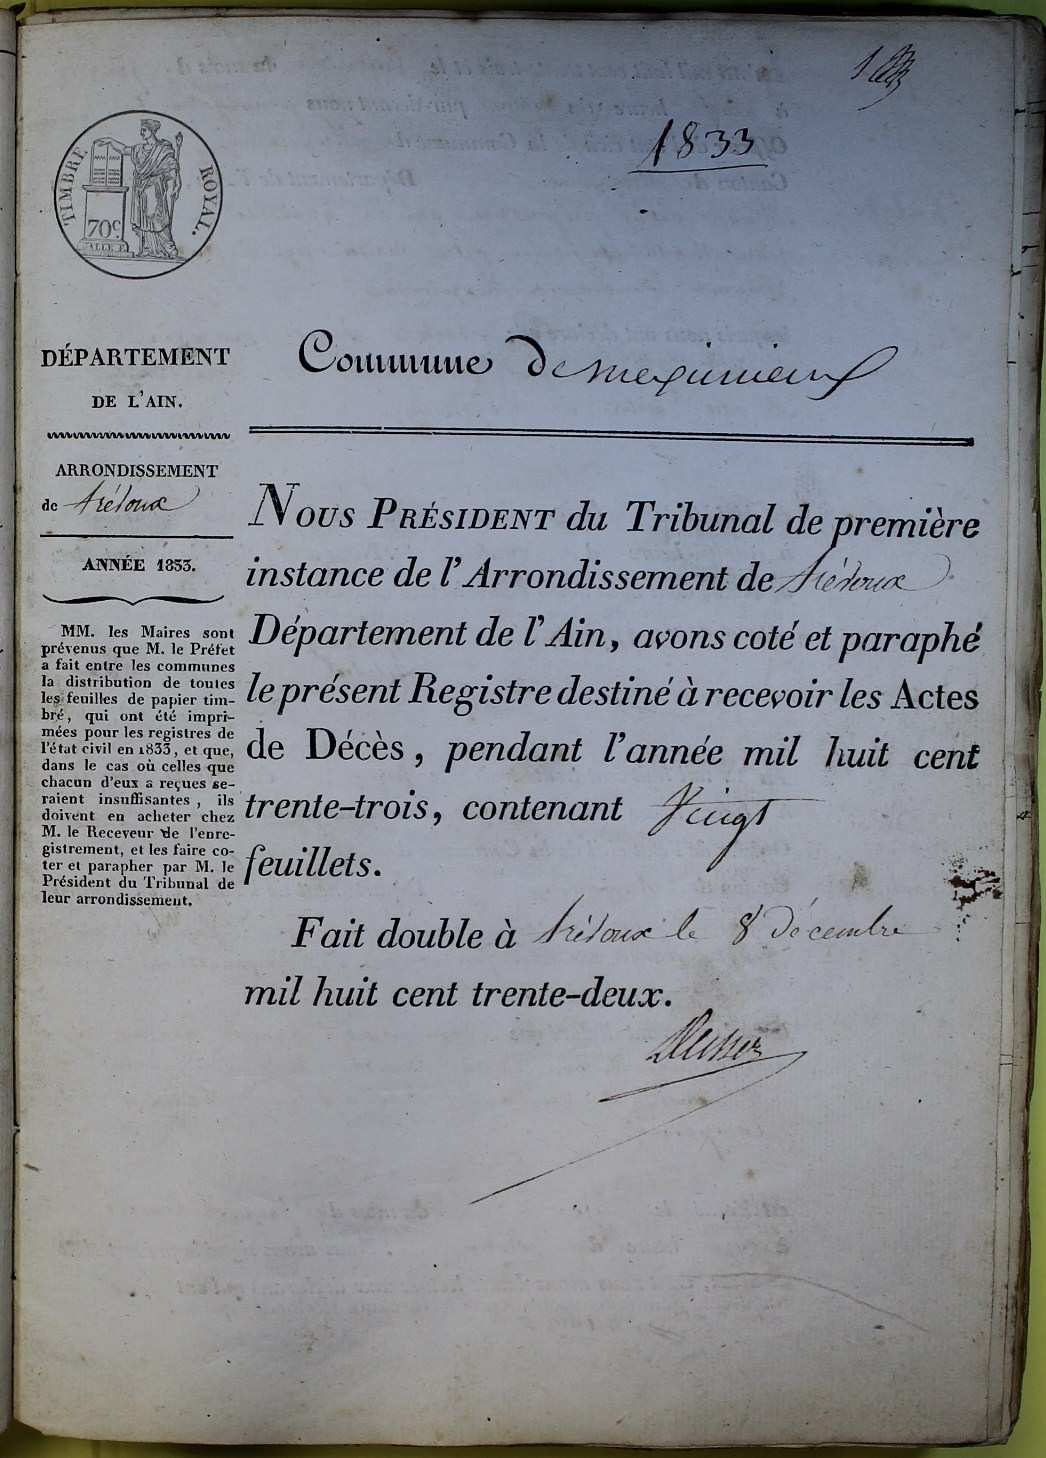 1
1833
TIMBRE ROYAL.
70c.
DÉPARTEMENT
DE L'AIN.
ARRONDISSEMENT
de trévoux
ANNÉE 1833.
MM. les Maires sont
prévenus que M. le Préfet
a fait entre les communes
la distribution de toutes
les feuilles de papier tim-
bré, qui ont été impri-
mées pour les registres de
l'état civil en 1833, et que,
dans le cas où celles que
chacun d'eux a reçues se-
raient insuffisantes, ils
doivent en acheter chez
M. le Receveur de l'enre-
gistrement, et les faire co-
ter et parapher par M. le
Président du Tribunal de
leur arrondissement.
Commune De meximieux
NOUS PRÉSIDENT du Tribunal de première
instance de l'Arrondissement de trévoux
Département de l'Ain, avons coté et paraphé
le présent Registre destiné à recevoir les Actes
de Décès, pendant l'année mil huit cent
trente-trois, contenant Vingt
feuillets.
Fait double à trévoux le 8 décembre
mil huit cent trente-deux.